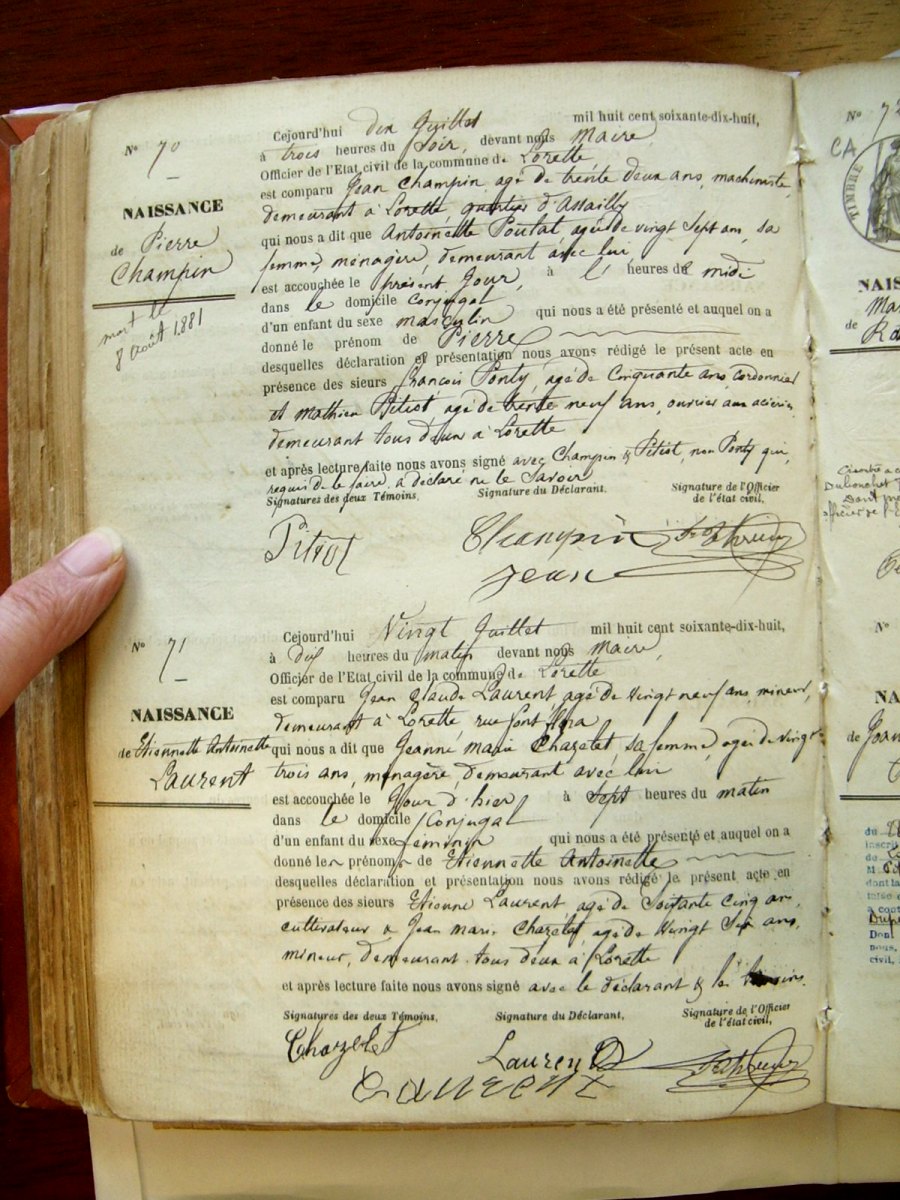 N° 70
NAISSANCE
de Pierre
Champin
mort le
8 août 1881
Cejourd'hui dix Juillet mil huit cent soixante-dix-huit,
à trois heures du soir, devant nous Maire,
Officier de l'Etat civil de la commune de Lorette,
est comparu Jean Champin, agé de trente deux ans, machiniste
demeurant à Lorette, quartier d'Assailly
qui nous a dit que Antoinette Poulat agée de vingt Sept ans, sa
femme, ménagère, demeurant avec lui,
est accouchée le présent Jour, à l' heures de midi
dans le domicile Conjugal
d'un enfant du sexe masculin qui nous a été présenté et auquel on a
donné le prénom de Pierre
desquelles déclaration et présentation nous avons rédigé le présent acte en
présence des sieurs françois Ponty, agé de Cinquante ans, cordonnier
et Mathieu Pitiot, agé de trente neuf ans, ouvrier aux aciéries
demeurant tous deux à Lorette
et après lecture faite nous avons signé avec Champin & Pitiot, non Ponty qui,
requis de le faire a déclaré ne le Savoir
Signatures des deux Témoins. Signature du Déclarant. Signature de l'Officier
de l'état civil,
Pitiot Champin
Jean
N° 71
NAISSANCE
de Etiennette Antoinette
Laurent
Cejourd'hui Vingt Juillet mil huit cent soixante-dix-huit,
à dix heures du matin devant nous Maire,
Officier de l'Etat civil de la commune de Lorette
est comparu Jean Claude Laurent, agé de Vingt neuf ans, mineur,
demeurant à Lorette rue font flora
qui nous a dit que Jeanne Marie Chazelet, sa femme, agée de vingt
trois ans, ménagère, demeurant avec lui
est accouchée le Jour d'hier à Sept heures du matin
dans le domicile Conjugal
d'un enfant du sexe féminin qui nous a été présenté et auquel on a
donné les prénoms de Etiennette Antoinette
desquelles déclaration et présentation nous avons rédigé le présent acte en
présence des sieurs Etienne Laurent agé de Soixante Cinq ans,
cultivateur & Jean Marie Chazelet, agé de Vingt Six ans,
mineur, demeurant tous deux à Lorette
et après lecture faite nous avons signé avec le déclarant & les témoins.
Signatures des deux Témoins, Signature du Déclarant, Signature de l'Officier
de l'état civil,
Chazelet Laurent
Laurent
N° 72
CA
TIMBRE
N°
de Joan